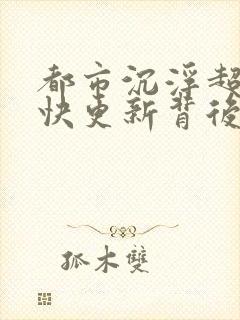 都市沉浮超
快更新背後
孤木雙